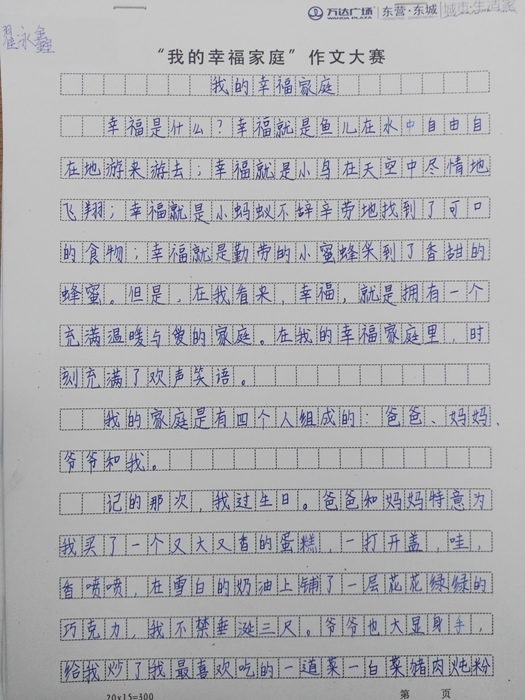 万达广场 WANDA PLAZA 东营·东城 城市·生活
翟永鑫
“我的幸福家庭”作文大赛
我的幸福家庭
幸福是什么？幸福就是鱼儿在水中自由自
在地游来游去；幸福就是小鸟在天空中尽情地
飞翔；幸福就是小蚂蚁不辞辛劳地找到了可口
的食物；幸福就是勤劳的小蜜蜂采到了香甜的
蜂蜜。但是，在我看来，幸福，就是拥有一个
充满温暖与爱的家庭。在我的幸福家庭里，时
刻充满了欢声笑语。
我的家庭是有四个人组成的：爸爸、妈妈、
爷爷和我。
记的那次，我过生日。爸爸和妈妈特意为
我买了一个又大又香的蛋糕，一打开盖，哇，
香喷喷，在雪白的奶油上铺了一层花花绿绿的
巧克力，我不禁垂涎三尺。爷爷也大显身手，
给我炒了我最喜欢吃的一道菜—白菜猪肉炖粉
20×15=300 第 页